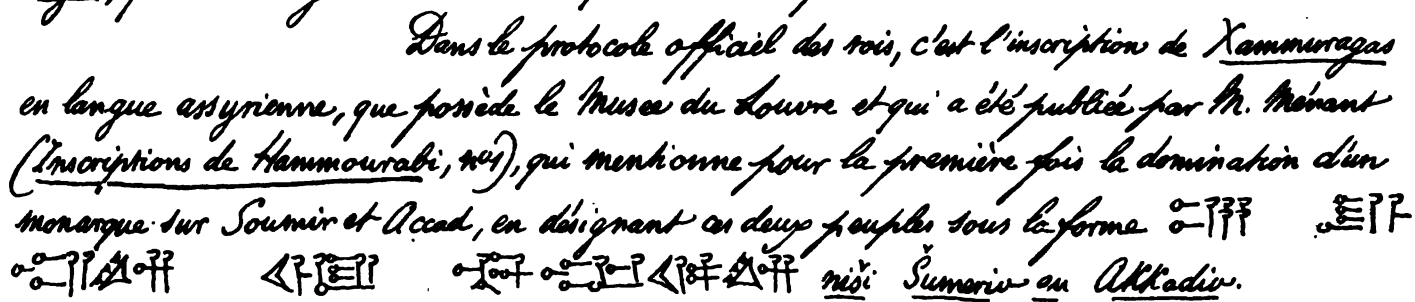 Dans le protocole officiel des rois, c'est l'inscription de Xammuragas
en langue assyrienne, que possède le Musee du Louvre et qui a été publiée par M. Ménant
(Inscriptions de Hammourabi, nº1), qui mentionne pour la première fois la domination d'un
monarque sur Soumir et Accad, en désignant ces deux peuples sous la forme
niši Šumeriv su Akkadiv.